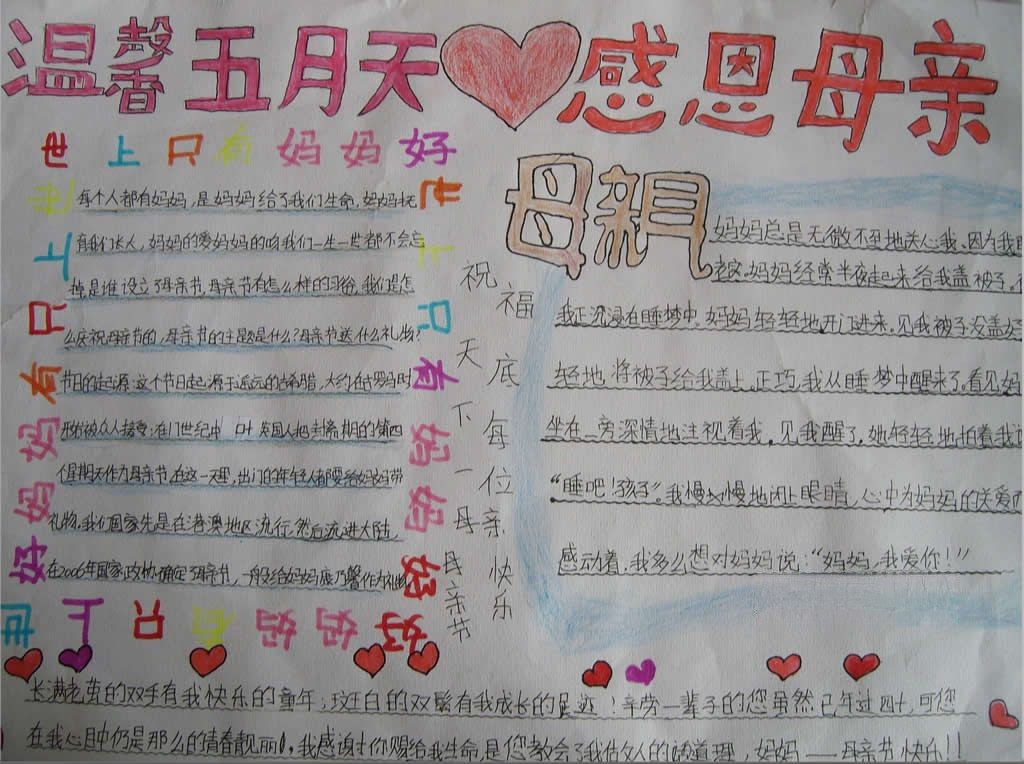 温馨五月天 感恩母亲
世上只有妈妈好
每个人都有妈妈，是妈妈给了我们生命，妈妈抚
育我们长大，妈妈的爱妈妈的吻我们一生一世都不会忘
掉是谁设立了母亲节，母亲节有怎么样的习俗，我们是怎
么庆祝母亲节的，母亲节的主题是什么？母亲节送什么礼物？
节日的起源：这个节日起源于遥远的古希腊，大约在古罗马时
形被众人接受，在17世纪中叶英国人把封斋期的第四
个星期天作为母亲节，在这一天里，出门的年轻人都要给妈妈带
礼物。我们国家先是在港澳地区流行，然后流进大陆，
在2006年国家政协确定母亲节，一般给妈妈康乃馨作为礼物
世上只有妈妈好
世上只有妈妈好
世上只有妈妈好
祝福
天底
下每
一位
母亲
母亲节
快乐
母親
妈妈总是无微不至地关心我、因为我
妈妈经常半夜起来给我盖被子，
我正沉浸在睡梦中，妈妈轻轻地开门进来，见我被子没盖好
轻轻地将被子给我盖上，正巧，我从睡梦中醒来了，看见妈
坐在一旁深情地注视着我。见我醒了，她轻轻地拍着我
“睡吧！孩子”。我慢慢地闭上眼睛，心中为妈妈的关爱而
感动着，我多么想对妈妈说：“妈妈，我爱你！”
长满老茧的双手有我快乐的童年；斑白的双鬓有我成长的足迹！辛劳一辈子的您虽然已年过四十，可您
在我心目中仍是那么的青春靓丽，我感谢你赐给我生命，是您教会了我做人的道理，妈妈——母亲节快乐！！